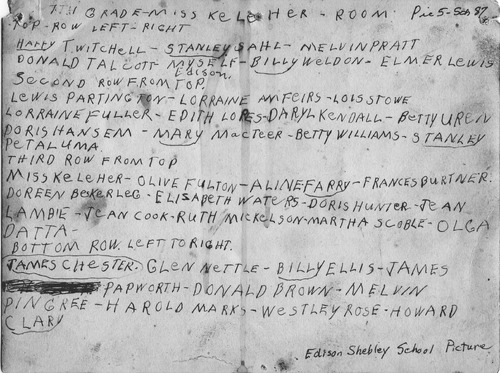 7TH GRADE - MISS KELEHER - ROOM. Pic 5 - Sep 87
TOP-ROW LEFT-RIGHT
HARRY T. WITCHELL - STANLEY SAHL - MELVIN PRATT
DONALD TALCOTT MYSELF - BILLY WELDON - ELMER LEWIS
Edison.
SECOND ROW FROM TOP.
LEWIS PARTINGTON - LORRAINE AMFEIRS - LOIS STOWE
LORRAINE FULLER - EDITH LOPES - DARYL KENDALL - BETTY UREN
DORIS HANSEM - MARY MACTEER - BETTY WILLIAMS - STANLEY
PETALUMA.
THIRD ROW FROM TOP
MISS KELEHER - OLIVE FULTON - ALINE FARRY - FRANCES BURTNER.
DOREEN BEKERLEG - ELISABETH WATERS - DORIS HUNTER - JEAN
LAMBIE - JEAN COOK - RUTH MICKELSON - MARTHA SCOBLE - OLGA
DATTA -
BOTTOM ROW. LEFT TO RIGHT.
JAMES CHESTER. GLEN NETTLE - BILLY ELLIS - JAMES
PAPWORTH - DONALD BROWN - MELVIN
PINGREE - HAROLD MARKS - WESTLEY ROSE - HOWARD
CLARY
Edison Shebley School Picture